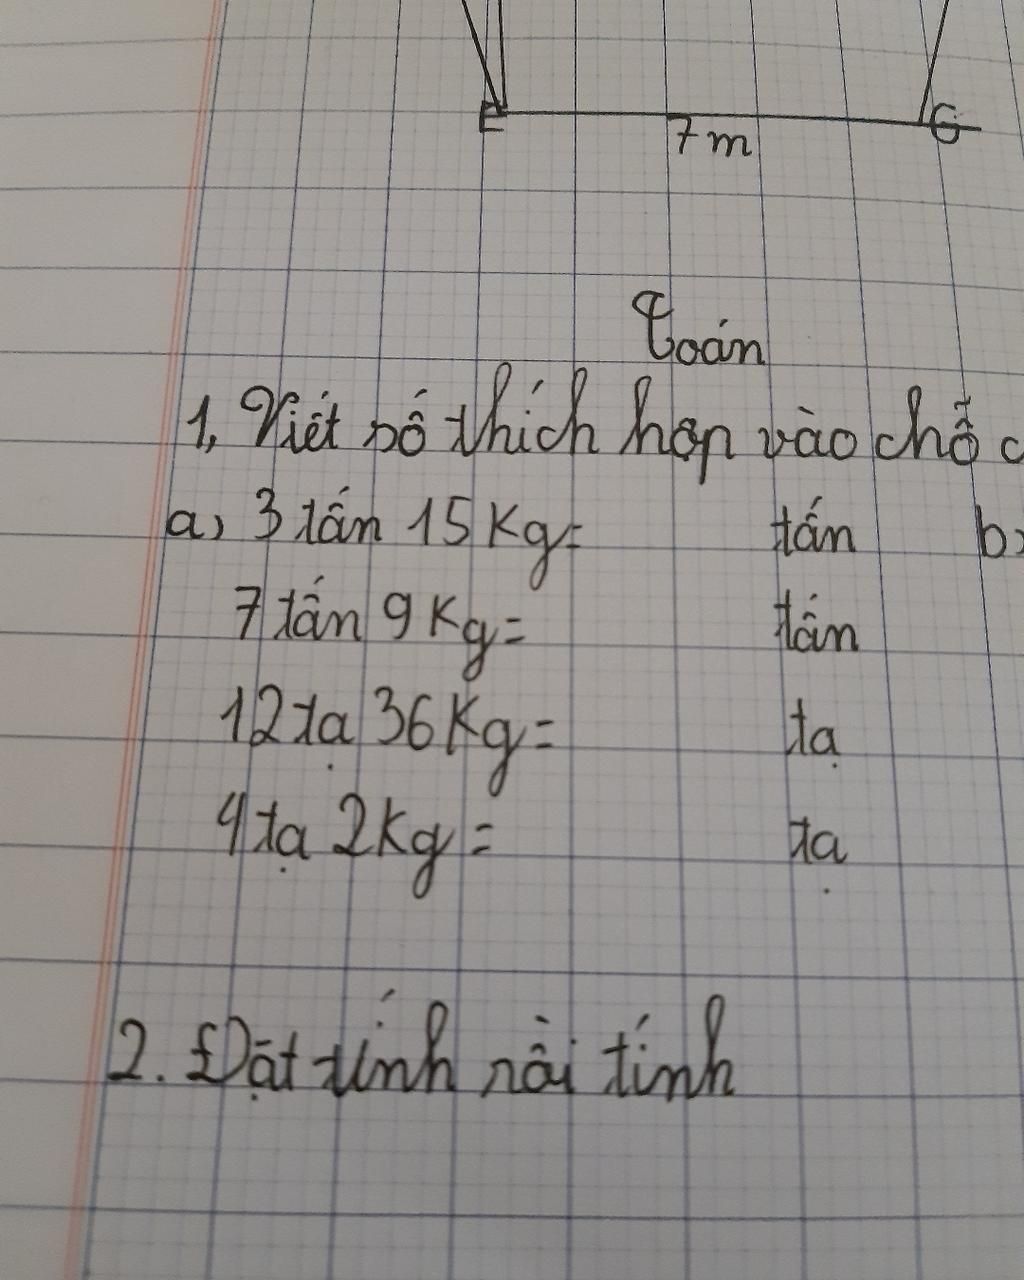 E
7m
G
Toán
1, Viết số thích hợp vào chỗ c
a, 3 tấn 15 Kg= tấn b,
7 tấn 9 Kg= tấn
12 tạ 36 Kg= tạ
4 tạ 2 Kg = tạ
2. Đặt tính rồi tính